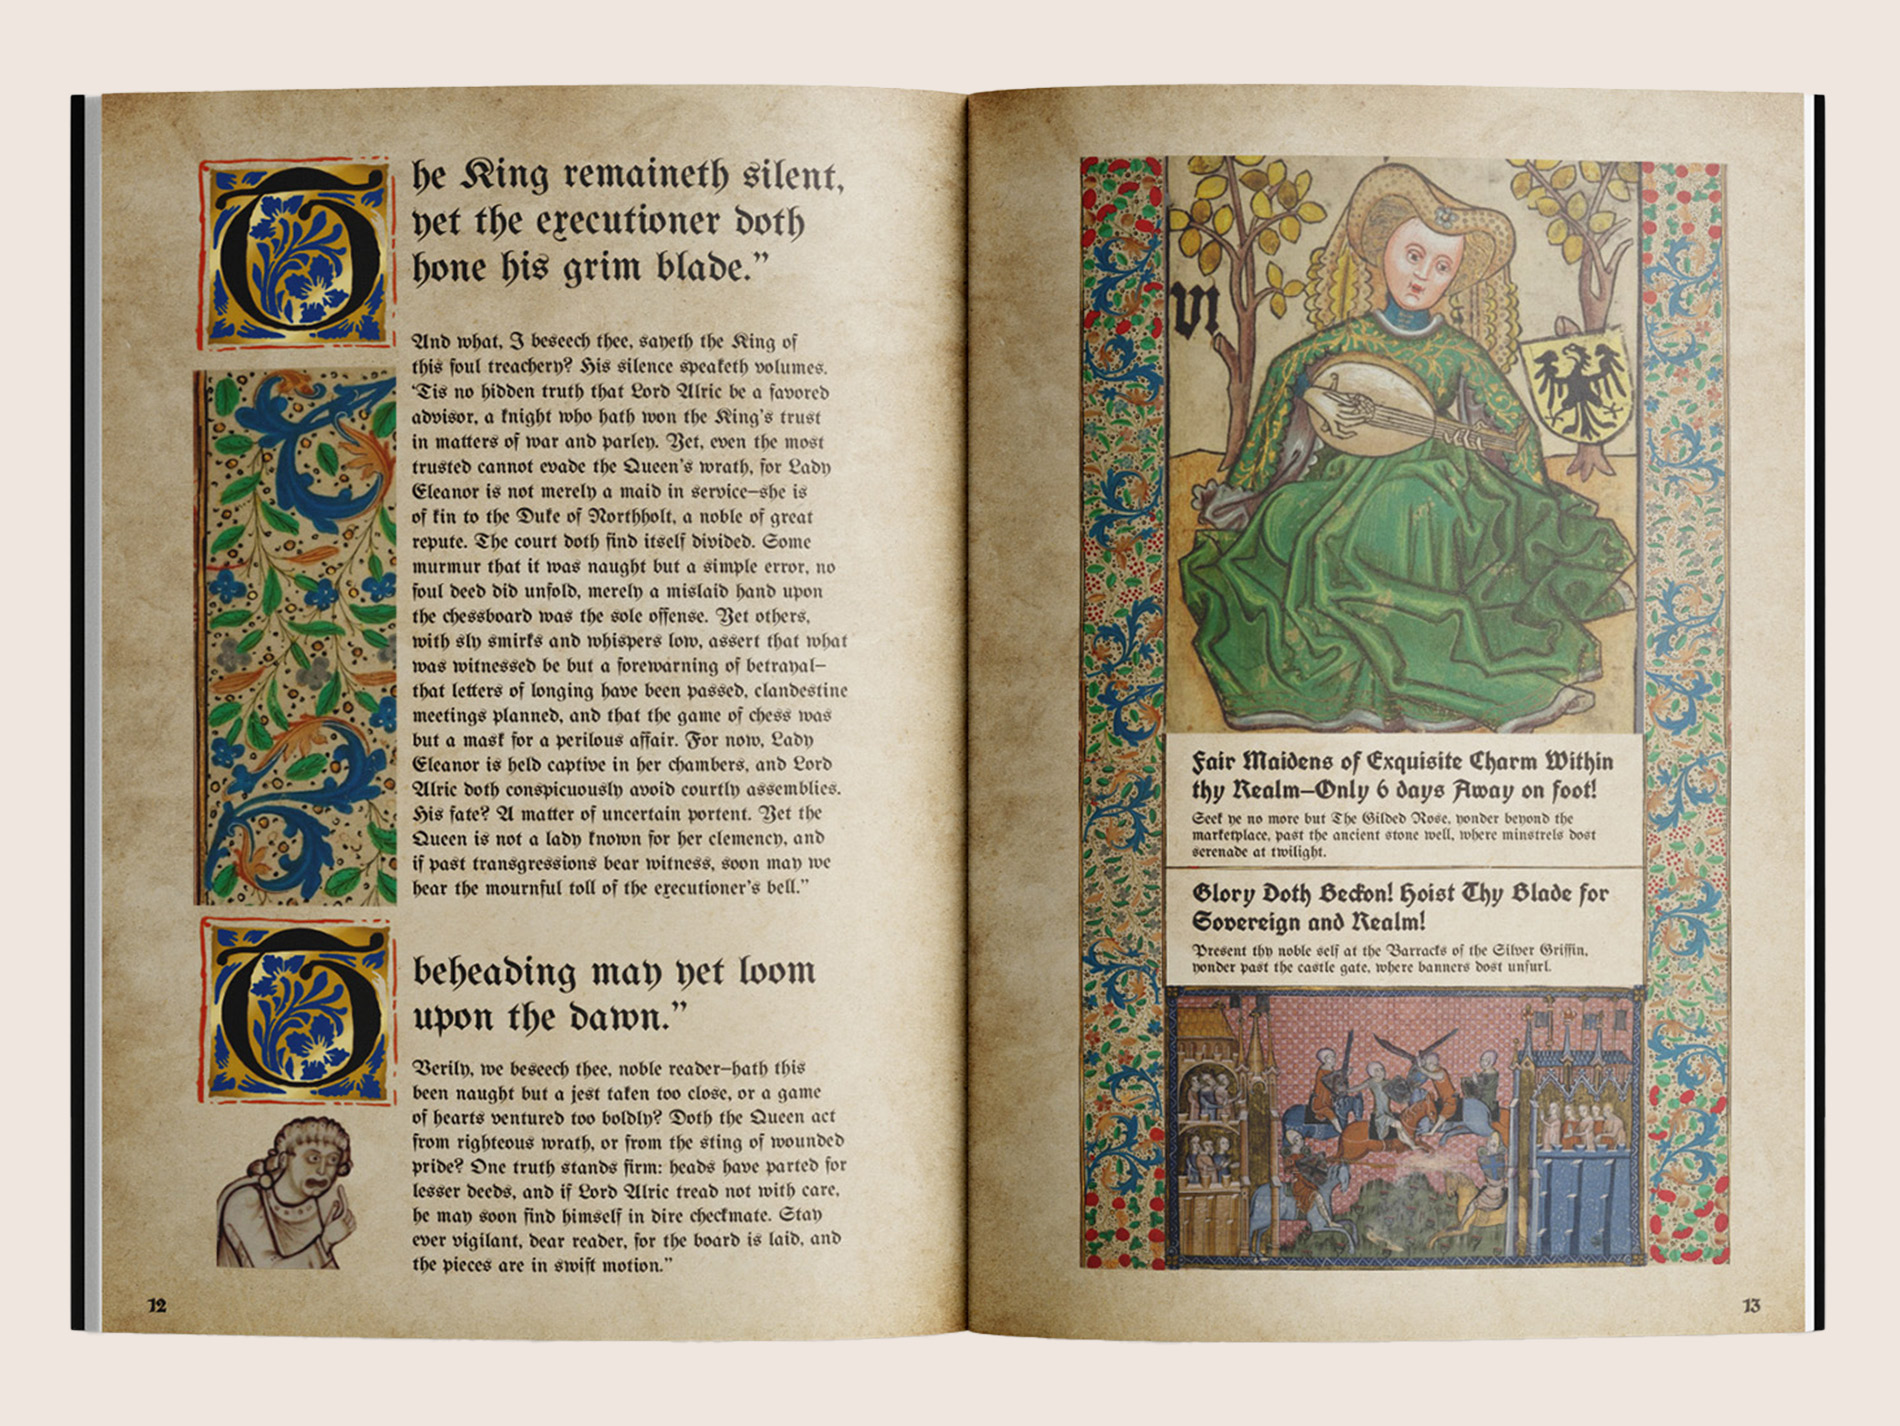 The King remaineth silent,
yet the executioner doth
hone his grim blade.”
And what, I beseech thee, sayeth the King of
this foul treachery? His silence speaketh volumes.
‘Tis no hidden truth that Lord Alric be a favored
advisor, a knight who hath won the King’s trust
in matters of war and parley. Yet, even the most
trusted cannot evade the Queen’s wrath, for Lady
Eleanor is not merely a maid in service—she is
of kin to the Duke of Northholt, a noble of great
repute. The court doth find itself divided. Some
murmur that it was naught but a simple error, no
foul deed did unfold, merely a mislaid hand upon
the chessboard was the sole offense. Yet others,
with sly smirks and whispers low, assert that what
was witnessed be but a forewarning of betrayal—
that letters of longing have been passed, clandestine
meetings planned, and that the game of chess was
but a mask for a perilous affair. For now, Lady
Eleanor is held captive in her chambers, and Lord
Alric doth conspicuously avoid courtly assemblies.
His fate? A matter of uncertain portent. Yet the
Queen is not a lady known for her clemency, and
if past transgressions bear witness, soon may we
hear the mournful toll of the executioner’s bell.”
T beheading may yet loom
upon the dawn.”
Verily, we beseech thee, noble reader—hath this
been naught but a jest taken too close, or a game
of hearts ventured too boldly? Doth the Queen act
from righteous wrath, or from the sting of wounded
pride? One truth stands firm: heads have parted for
lesser deeds, and if Lord Alric tread not with care,
he may soon find himself in dire checkmate. Stay
ever vigilant, dear reader, for the board is laid, and
the pieces are in swift motion.”
12
VI
Fair Maidens of Exquisite Charm Within
thy Realm—Only 6 days Away on foot!
Seek ye no more but The Gilded Rose, yonder beyond the
marketplace, past the ancient stone well, where minstrels dost
serenade at twilight.
Glory Doth Beckon! Hoist Thy Blade for
Sovereign and Realm!
Present thy noble self at the Barracks of the Silver Griffin,
yonder past the castle gate, where banners dost unfurl.
13